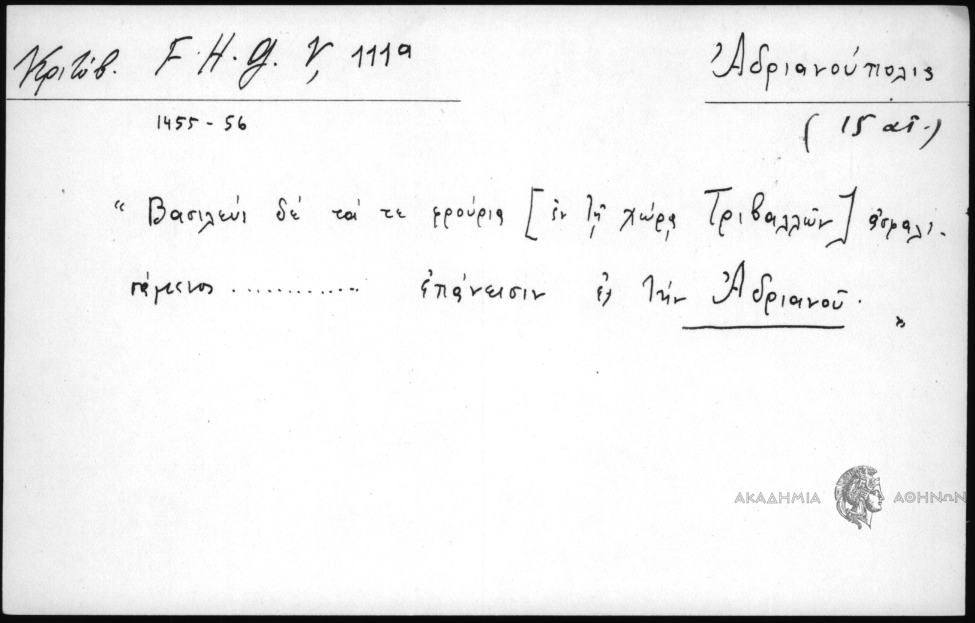 Κριτόβ. F.H.G. V, 111α
Ἀδριανούπολις
1455 - 56
(15 αἰ.)
“ Βασιλεὺς δὲ τά τε φρούρια [ἐν τῇ χώρᾳ Τριβαλλῶν] ἀσφαλι-
σάμενος ............ ἐπάνεισιν ἐς τὴν Ἀδριανοῦ. ”
ΑΚΑΔΗΜΙΑ ΑΘΗΝΩΝ